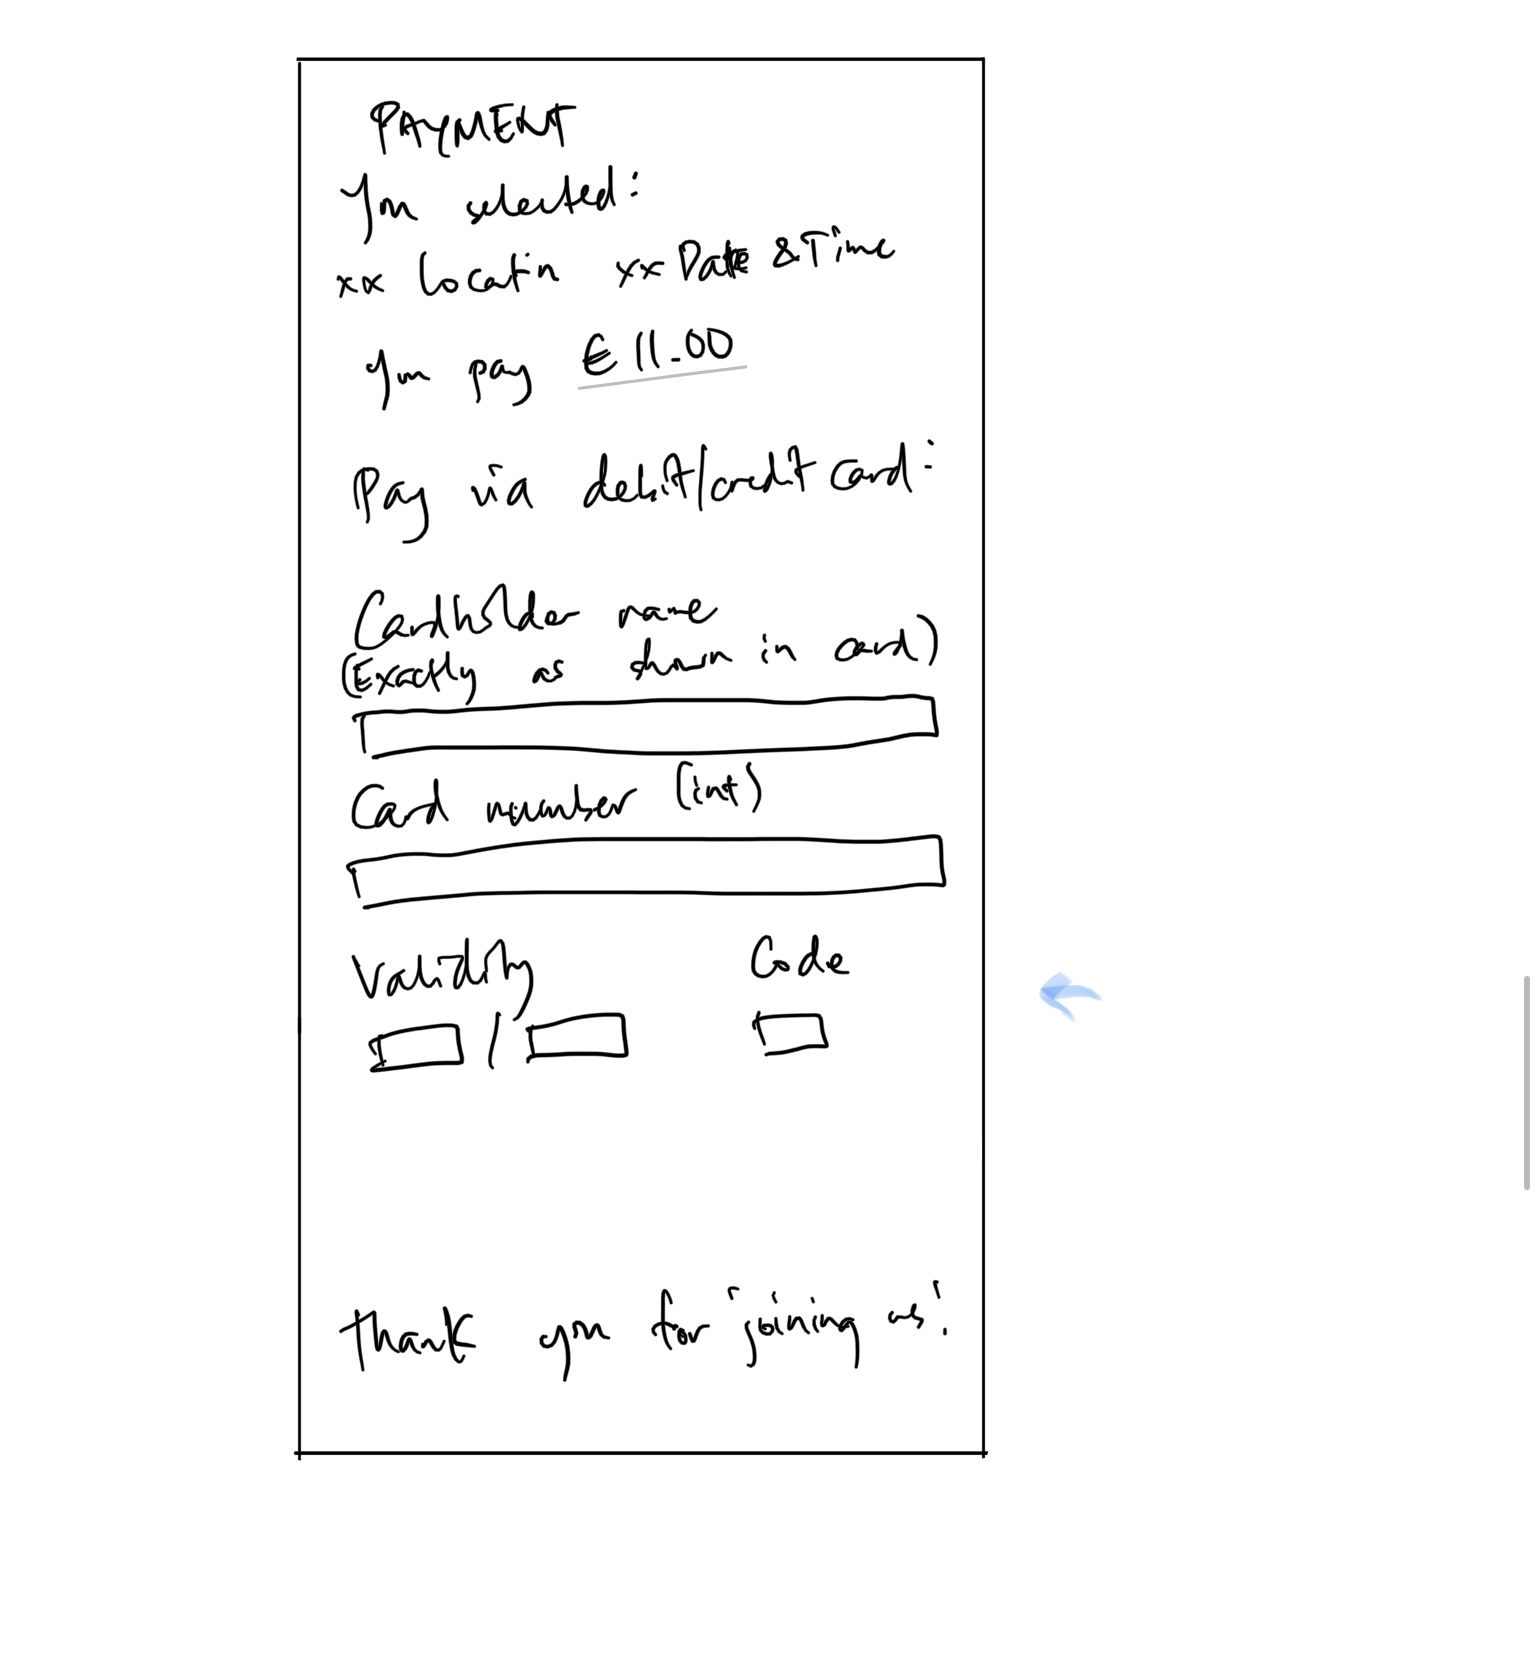 PAYMENT
You selected:
xx Location xx Date & Time
You pay € 11.00
Pay via debit/credit card:
Cardholder name
(Exactly as shown in card)
Card number (int)
Validity Code
/
Thank you for joining us!